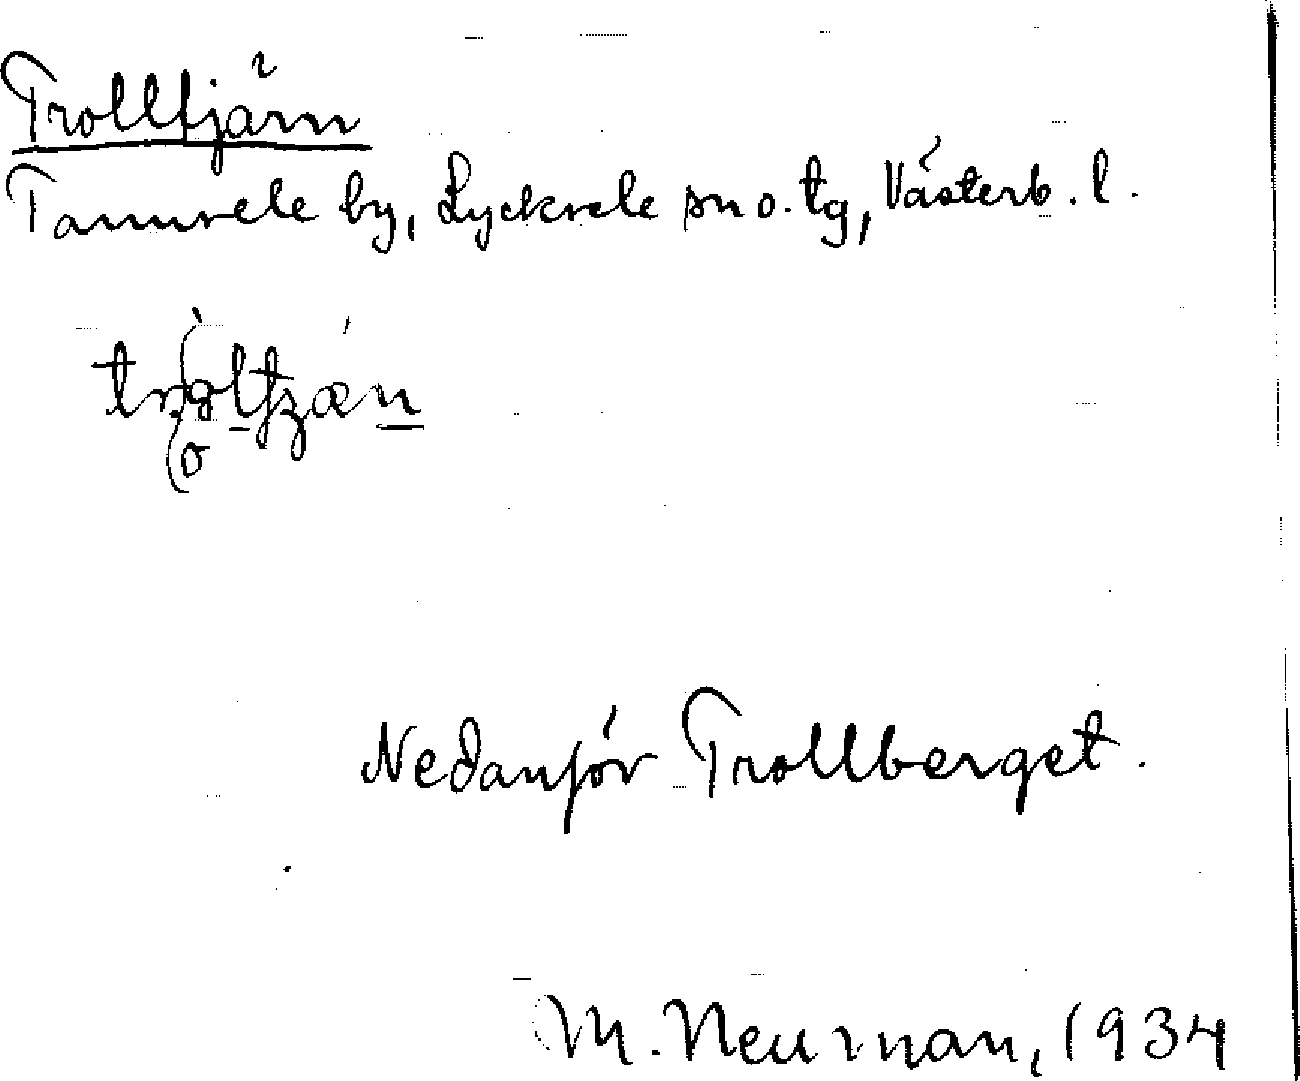 Trolltjärn
Tannsele by, Lycksele sn o. tg, Västerb. l.
Nedanför Trollberget.
M. Neuman, 1934